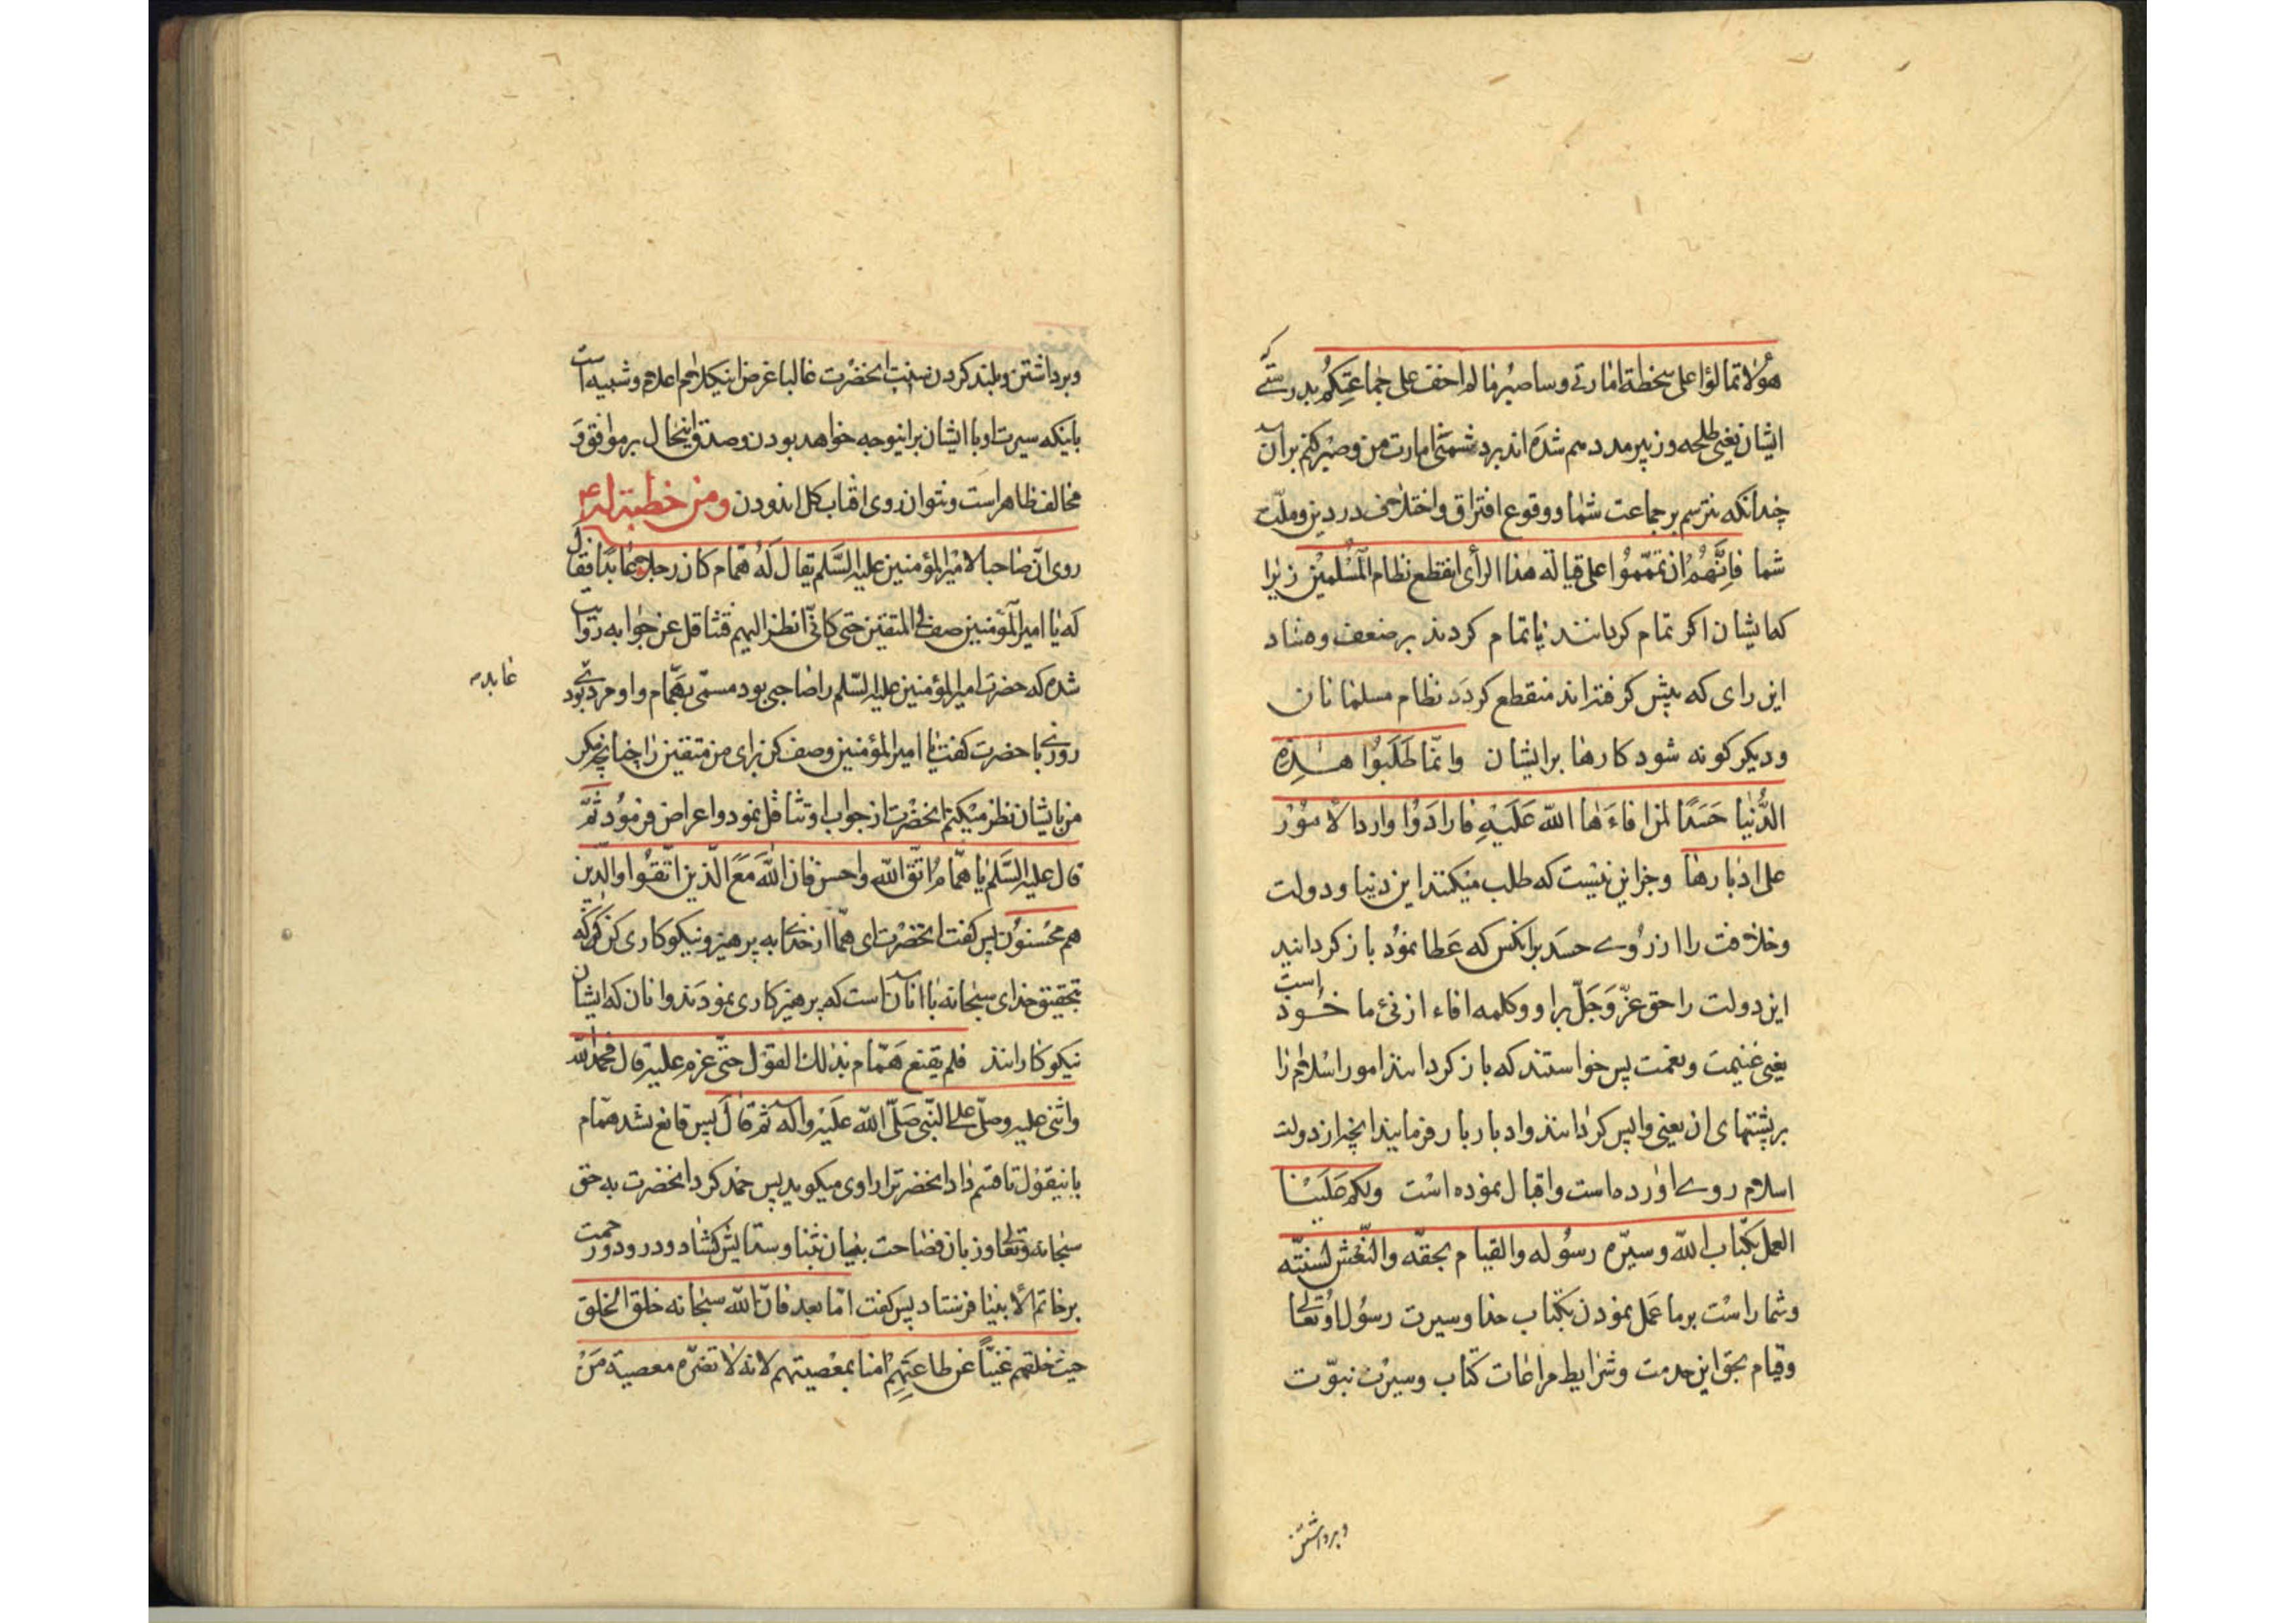 هؤلا تمالؤا علی سخطة امارتی وساصبر مالم اخف علی جماعتکم بدرستی که
ایشان یعنی طلحه وزبیر مدد هم شده اند بر دشمنی امارت من وصبر کنم بران
چندانکه نترسم بر جماعت شما ووقوع افتراق واختلاف در دین وملت
شما فانهم ان تمموا علی قیالة هذا الرأی انقطع نظام المسلمین زیرا
که ایشان اکر تمام کردانند یا تمام کردند بر ضعف وفساد
این رای که پیش کرفته اند منقطع کردد نظام مسلمانان
ودیکر کونه شود کارها بر ایشان وانما طلبوا هذه
الدنیا حسدا لمن افاءها الله علیه فارادوا رد الامور
علی ادبارها وجز این نیست که طلب میکنند این دنیا ودولت
وخلافت را از روی حسد بر انکس که عطا نمود باز کردانید
این دولت را حق عز وجل بر او وکلمه افاء از فئ ماخوذ است
یعنی غنیمت ونعمت پس خواستند که باز کردانند امور اسلام را
بر پشتهای ان یعنی واپس کردانند وادبار بار فرمایند انچه از دولت
اسلام روی اورده است واقبال نموده است ولکم علینا
العمل بکتاب الله وسیرة رسوله والقیام بحقه والنعش لسنته
وشما راست بر ما عمل نمودن بکتاب خدا وسیرت رسول او تعالی
وقیام بحق این خدمت وشرایط مراعات کتاب وسیرت نبوت
وبرداشتن
وبرداشتن وبلند کردن سنت انحضرت غالبا غرض اینکلام اعلام وشبیه است
باینکه سیرت او با ایشان براینوجه خواهد بودن وصدق اینحال بر موافق و
مخالف ظاهر است ونتوان روی افتاب کل اندودن ومن خطبة له ع
روی ان صاحبا لامیر المؤمنین علیه السلم یقال له همام کان رجلا عابدا فقال
له یا امیر المؤمنین صف لی المتقین حتی کانی انظر الیهم فتثاقل عن جوابه روایت
شده که حضرت امیر المؤمنین علیه السلم را صاحبی بود مسمی بهمام واو مردی بود
عابد
روزی با حضرت کفت یا امیر المؤمنین وصف کن برای من متقین را چنانچه مکر
من بایشان نظر میکنم انحضرت از جواب او تثاقل نمود واعراض فرمود ثم
قال علیه السلم یا همام اتق الله واحسن فان الله مع الذین اتقوا والذین
هم محسنون پس کفت انحضرت ای همام از خدای به پرهیز ونیکوکاری کن که
بتحقیق خدای سبحانه با انان است که پرهیزکاری نمودند وانان که ایشان
نیکوکارانند فلم یقنع همام بذلک القول حتی عزم علیه قال فحمد الله
واثنی علیه وصلی علی النبی صلی الله علیه واله ثم قال پس قانع نشد همام
باینقول تا قسم داد انحضرت را راوی میکوید پس حمد کرد انحضرت به حق
سبحانه وتعالی وزبان فصاحت بیان بثنا وستایش کشاد ودرود ورحمت
بر خاتم الانبیا فرستاد پس کفت اما بعد فان الله سبحانه خلق الخلق
حیث خلقهم غنیا عن طاعتهم امنا بمعصیتهم لانه لا تضره معصیة من